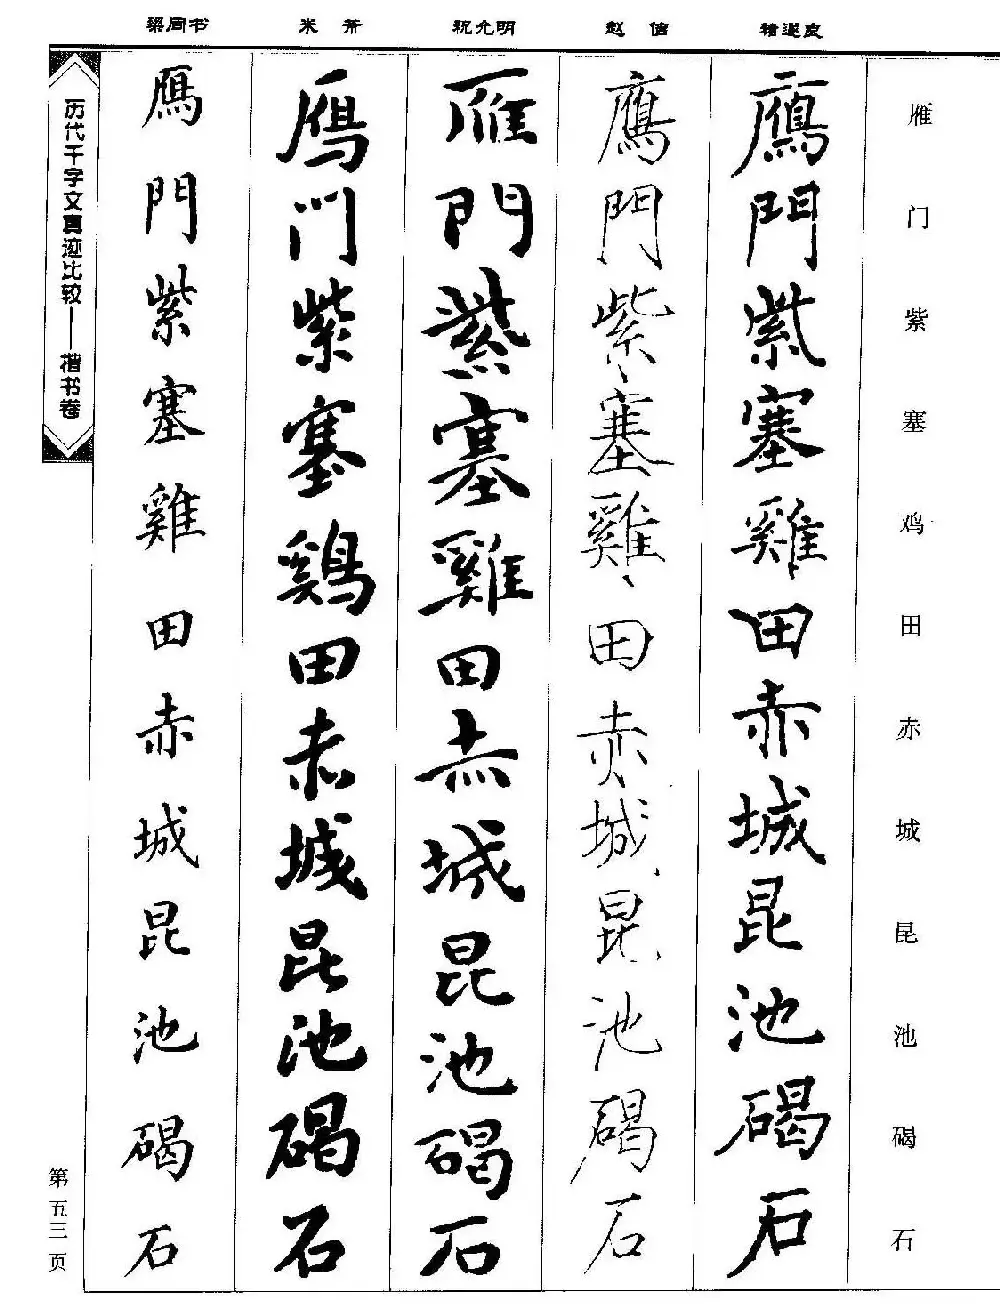 梁同书 米芾 祝允明 赵佶 褚遂良
雁门紫塞鸡田赤城昆池碣石
鴈門紫塞雞田赤城昆池碣石
鴈門紫塞雞田赤城昆池碣石
雁門紫塞雞田赤城昆池碣石
鴈門紫塞鷄田赤城昆池碣石
鴈門紫塞雞田赤城昆池碣石
历代千字文真迹比较——楷书卷
第五三页